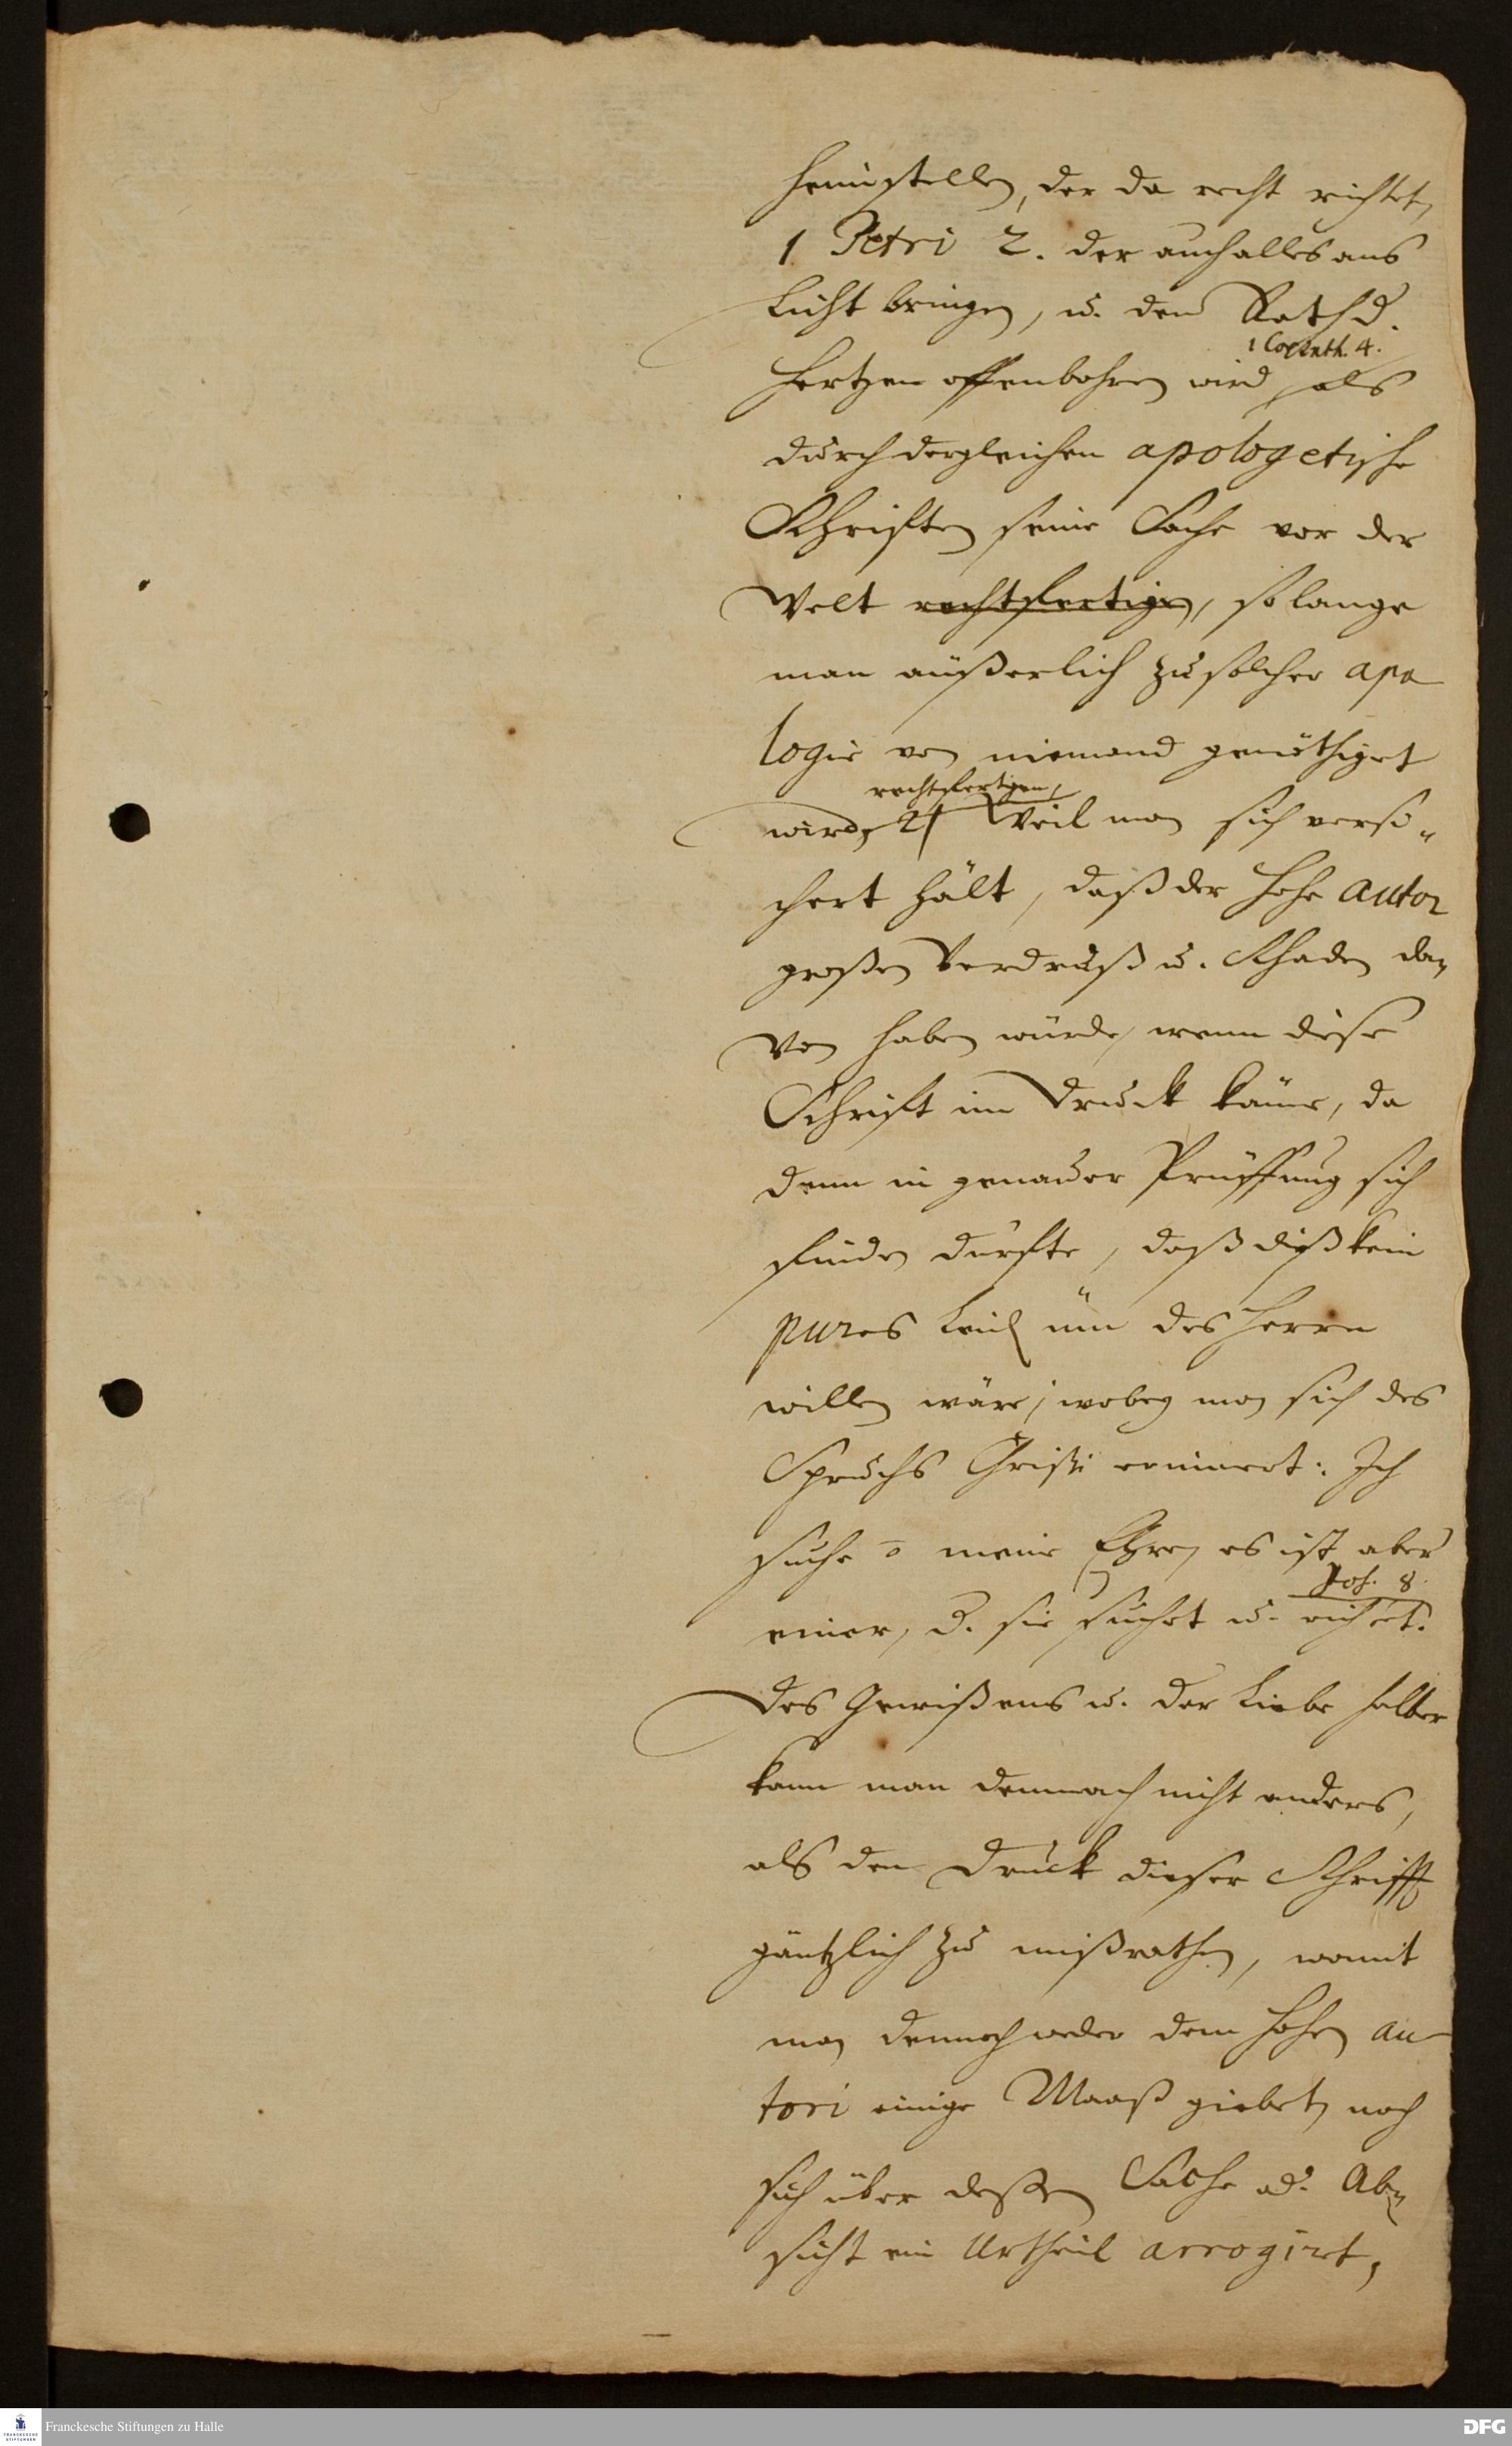 heimstellen, der da recht richtet,
1 Petri 2. der auch alles ans
Licht bringen, u. den Rath d.
1 Corinth. 4.
Hertzen offenbahren wird, als
durch dergleichen apologetische
Schriften seine Sache vor der
Welt rechtfertigen, so lange
man äußerlich zu solcher apo
logie von niemand genöthiget
rechtfertigen,
wird, 2) Weil man sich versi-
chert hält, daß der hohe autor
großen Verdruß u. Schaden da-
von haben würde, wenn diese
Schrift im Druck käme, da
denn in genauer Prüffung sich
finden dürfte, daß diß kein
pures Leid üm des Herrn
willen wäre, wobey man sich des
Spruchs Christi erinnert: Ich
suche õ meine Ehre, es ist aber
Joh. 8.
einer, d. sie suchet u. richtet.
Des Gewißens u. der Liebe halber
kann man demnach nicht anders,
als den Druck dieser Schrifft
gäntzlich zu mißrathen, womit
man dennoch weder dem hohen au
tori einige Maaß giebet, noch
sich über deßen Sache od. Ab-
sicht ein Urtheil arrogiret,
Franckesche Stiftungen zu Halle
DFG